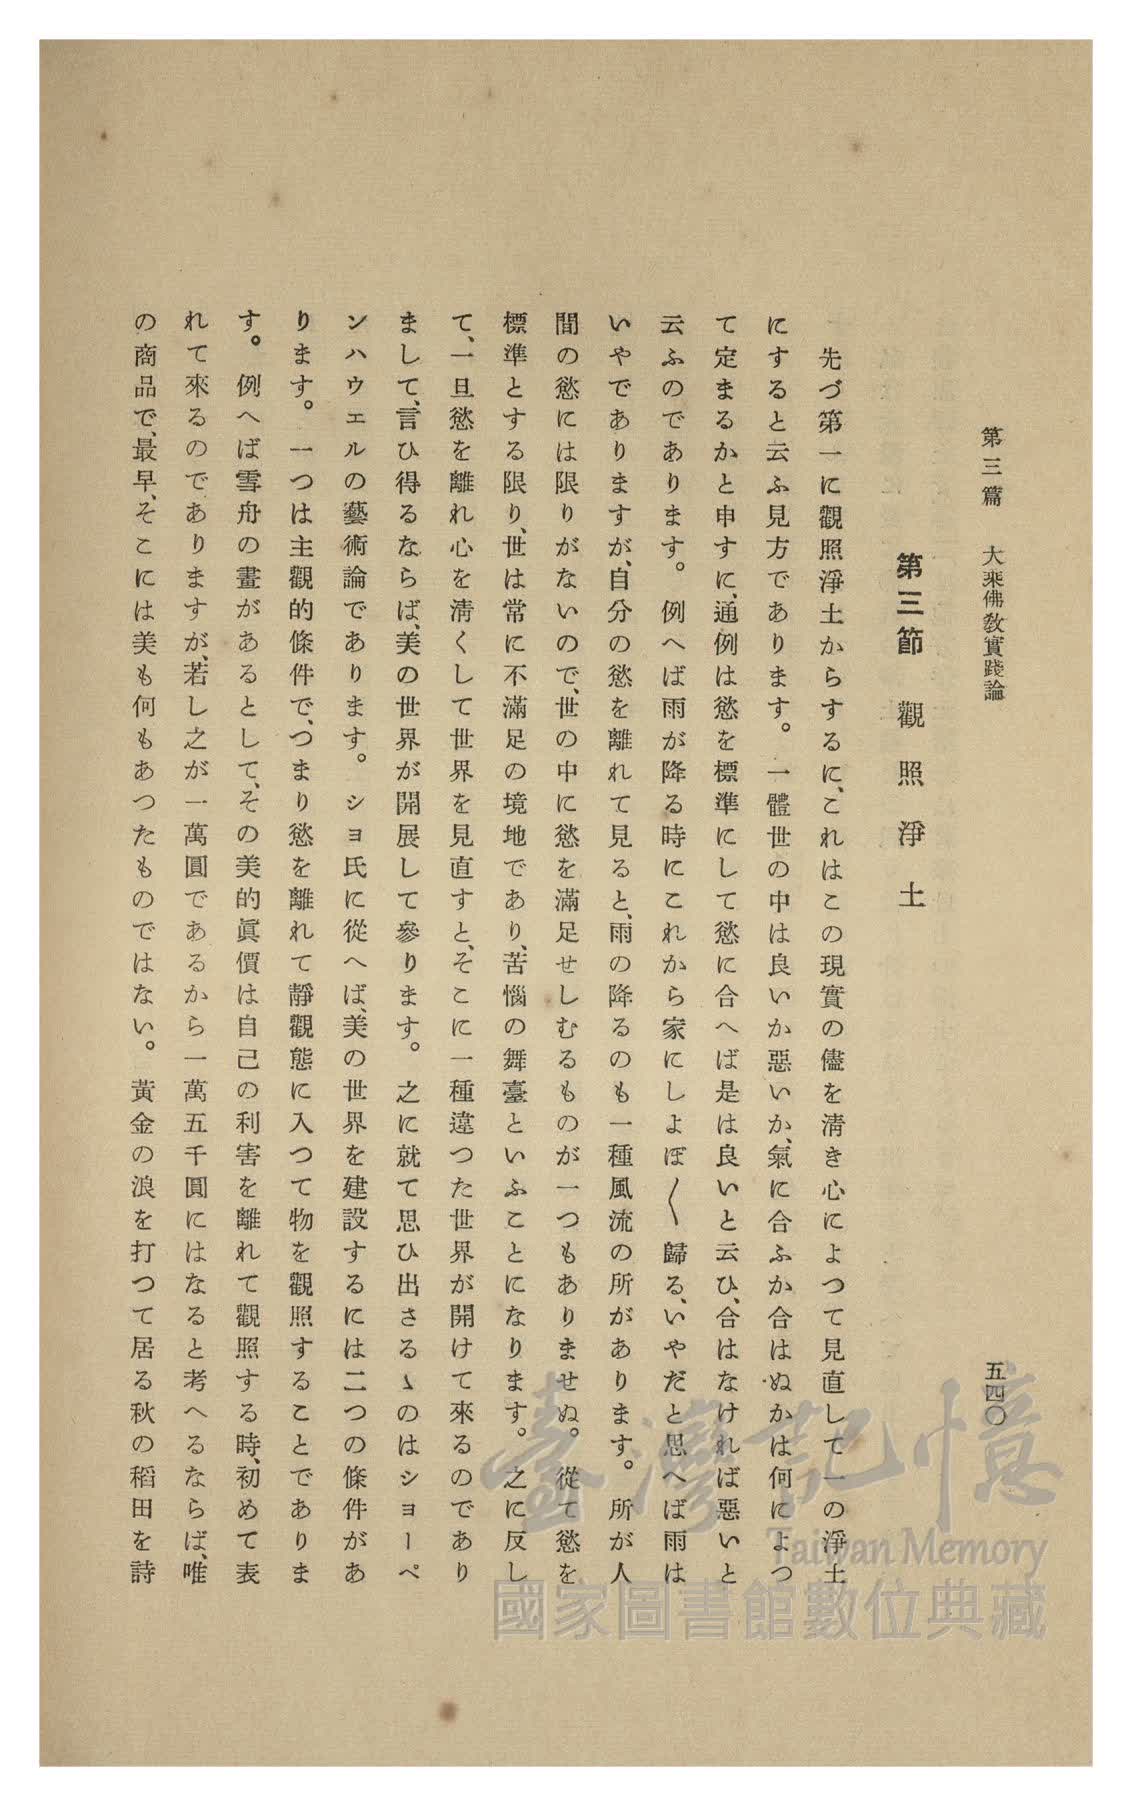 第三篇　大乘佛教實踐論
五四〇
第三節　觀照淨土
先づ第一に觀照淨土からするに、これはこの現實の儘を淸き心によつて見直して一の淨土
にすると云ふ見方であります。一體世の中は良いか惡いか、氣に合ふか合はぬかは何によつ
て定まるかと申すに、通例は慾を標準にして慾に合へば是は良いと云ひ、合はなければ惡いと
云ふのであります。例へば雨が降る時にこれから家にしよぼ〱歸る、いやだと思へば雨は
いやでありますが、自分の慾を離れて見ると、雨の降るのも一種風流の所があります。所が人
間の慾には限りがないので、世の中に慾を滿足せしむるものが一つもありませぬ。從て慾を
標準とする限り、世は常に不滿足の境地であり、苦惱の舞臺といふことになります。之に反し
て、一旦慾を離れ心を淸くして世界を見直すと、そこに一種違つた世界が開けて來るのであり
まして、言ひ得るならば、美の世界が開展して參ります。之に就て思ひ出さるゝのはショーペ
ンハウエルの藝術論であります。ショ氏に從へば、美の世界を建設するには二つの條件があ
ります。一つは主觀的條件で、つまり慾を離れて靜觀態に入つて物を觀照することでありま
す。例へば雪舟の畫があるとして、その美的眞價は自己の利害を離れて觀照する時、初めて表
れて來るのでありますが、若し之が一萬圓であるから一萬五千圓にはなると考へるならば、唯
の商品で、最早、そこには美も何もあつたものではない。黃金の浪を打つて居る秋の稻田を詩
臺灣記憶
Taiwan Memory
國家圖書館數位典藏